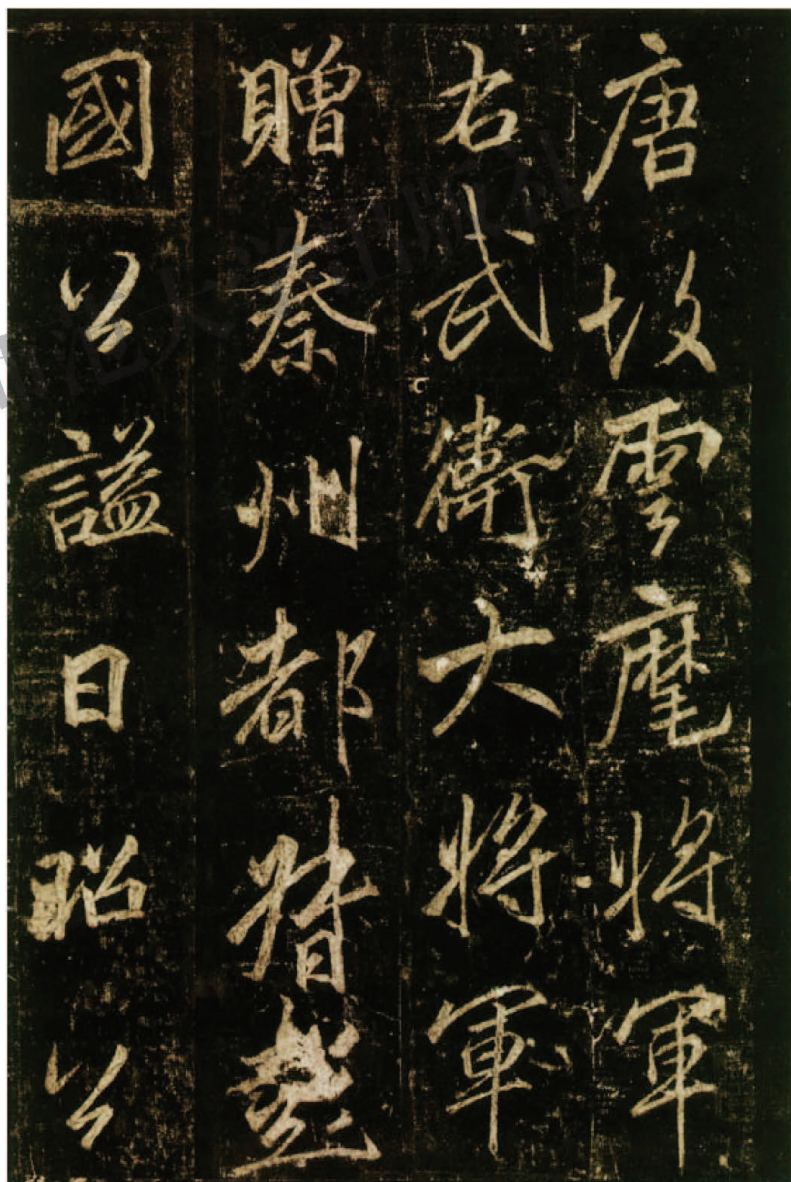 唐故雲麾將軍
右武衛大將軍
贈秦州都督
國公謚曰昭公